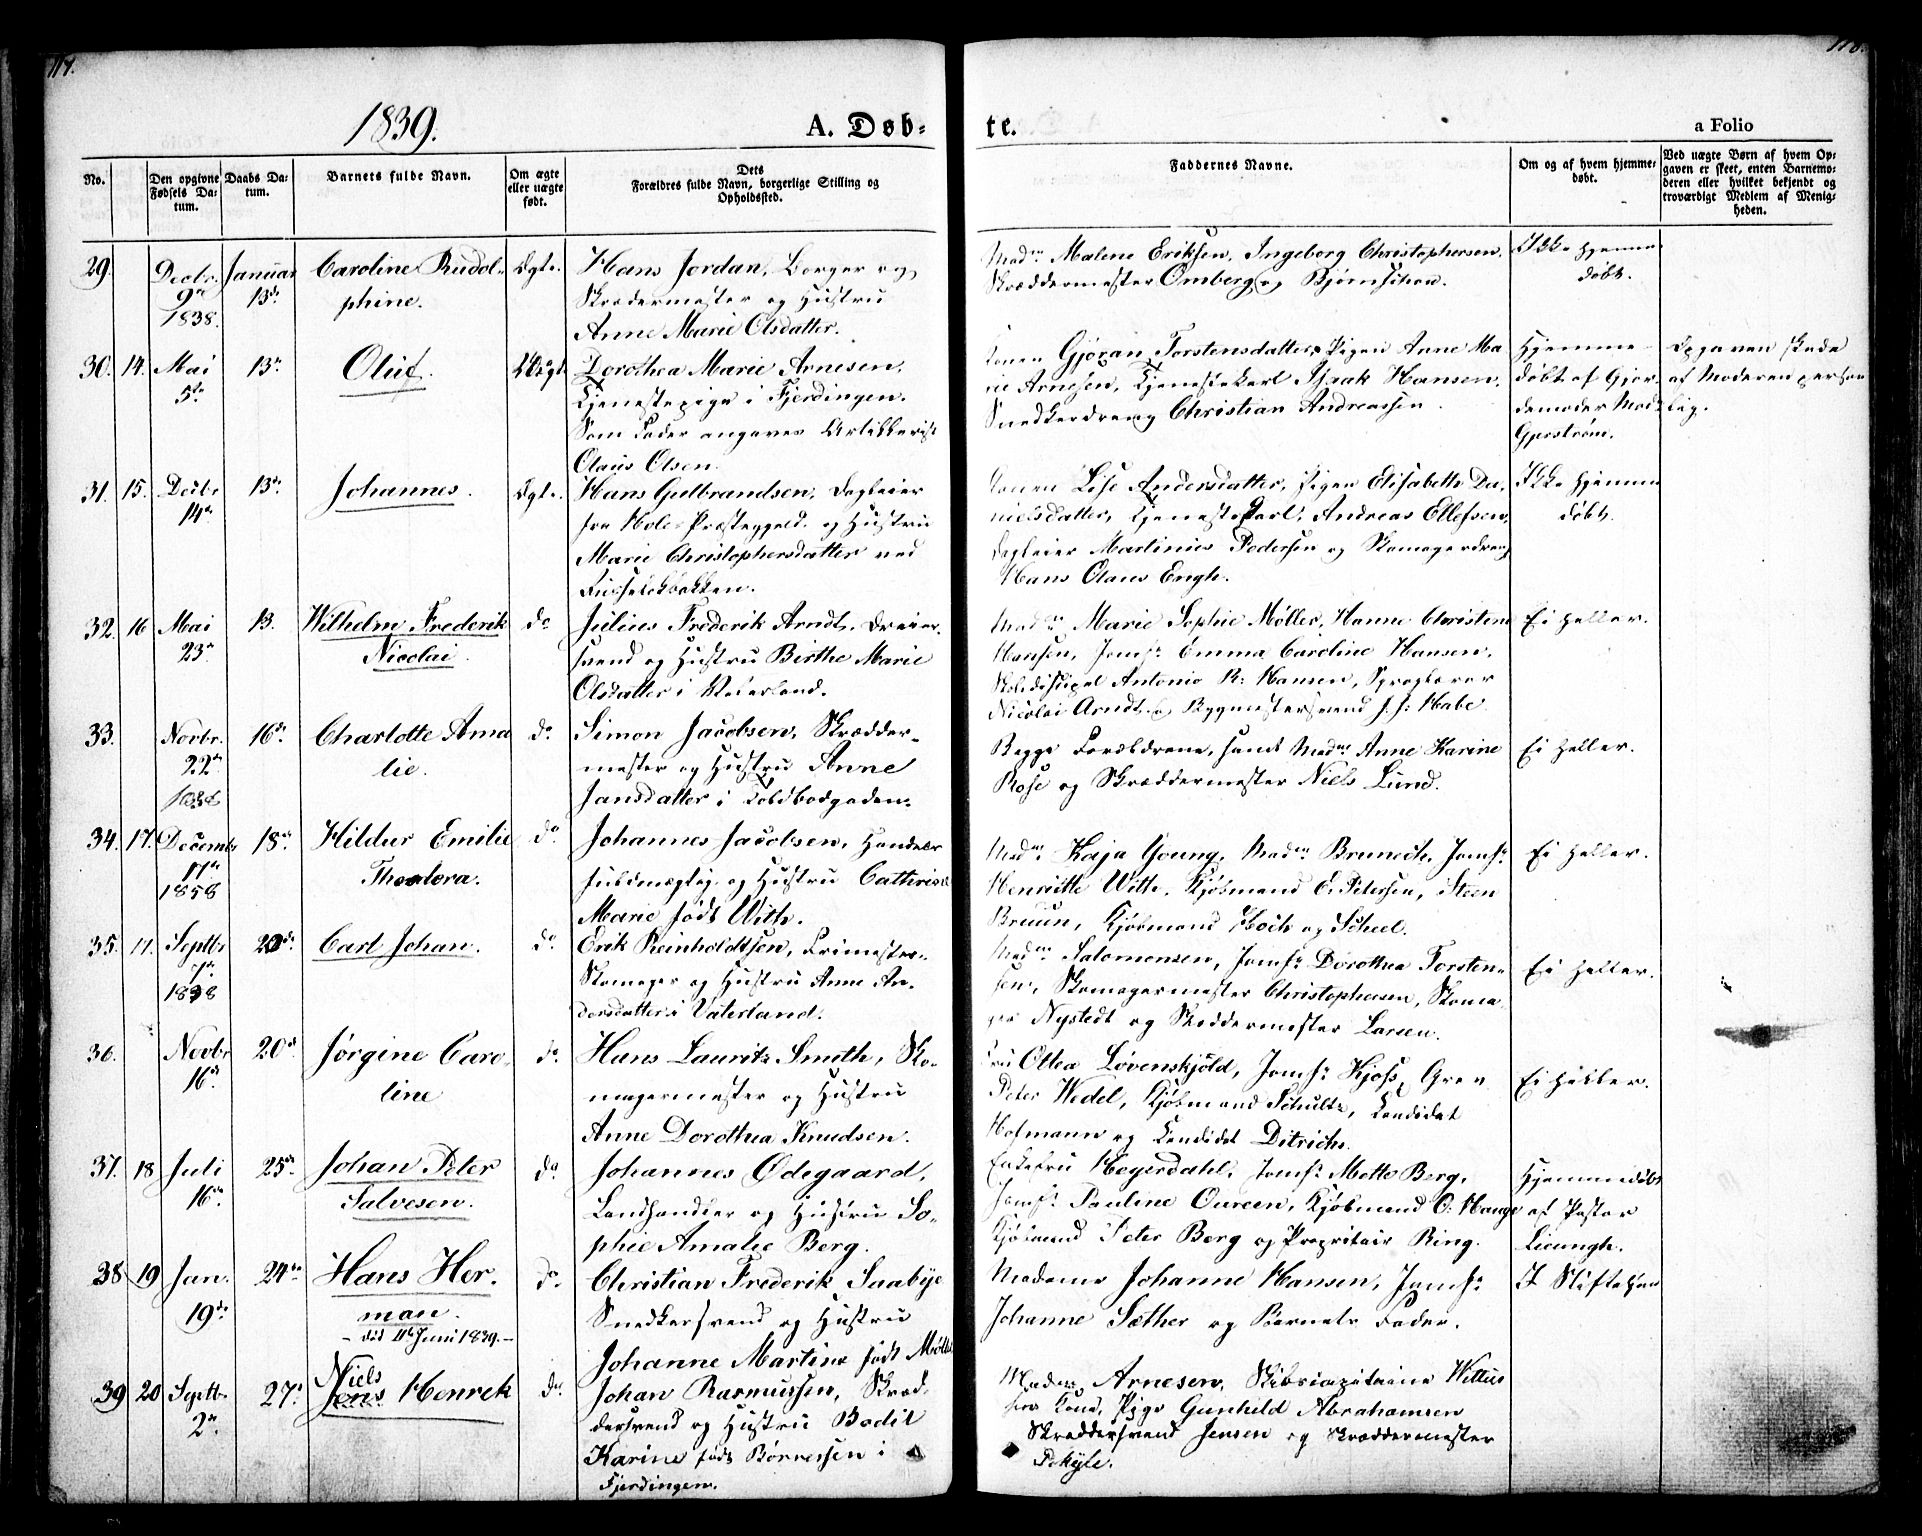 117.
118.
1839.
A. Døb-
te.
a Folio
No.
Den opgivne Fødsels Da-tum.
Daabs Da-tum.
Barnets fulde Navn.
Om ægte eller uægte født.
Dets
Forældres fulde Navn, borgerlige Stilling og
Opholdssted.
Faddernes Navne.
Om og af hvem hjemme-døbt.
Ved uægte Børn af hvem Op-gaven er skeet, enten Barnemo-deren eller hvilket bekjendt og troværdigt Medlem af Menig-heden.
29. Decbr. 9de 1838. Januar 13de Caroline Rudol-phine. Ægte.
Hans Jordan, Borger og
Skrædermester og Hustru
Anne Marie Olsdatter.
Madm Malene Eriksen, Ingeborg Christophersen,
Skræddermester Omberg og Bjørn
Ikke hjemme
døbt.
30. 14. Mai 5te 13de Oluf. Uægte
Dorothea Marie Arnesen,
Tjenestepige i Fjerdingen.
Som Fader angaves Artillerist
Olaus Olsen.
Konen Gjøran Torstensdatter, Pigen Anne Ma
rie Arnesen, Tjenestekarl Isaak Hansen,
Snedkerdreng Christian Andreassen.
Hjemme-
døbt af Gjor-
demoder Mad
Gjerstrøm.
Opgaven skede
af Moderen person
lig.
31. 15. Decbr 14de 13de Johannes. Ægte.
Hans Gulbrandsen, Dagleier
fra Hole Præstegjeld og Hustru
Marie Christophersdatter ved
Russeløkbakken.
Konen Lise Andersdatter, Pigen Elisabeth Da-
nielsdatter, Tjenestekarl Andreas Ellefsen,
Dagleier Martinius Pedersen og Skomagerdreng
Hans Olaus Engh.
Ikke hjemme
døbt.
32. 16 Mai 23de 13. Wilhelm Frederik Nicolai. do
Julius Frederik Arndt, Dreier-
svend og Hustru Birthe Marie
Olsdatter i Vaterland.
Madm Marie Sophie Møller, Hanne Christine
Hansen, Jomfr Emma Caroline Hansen,
Skoledisipel Antonio R: Hansen, Sproglærer
Nicolai Arndt og Bygmestersvend J. F: Habe
Ei heller.
33. Novbr. 22de 1838 16de Charlotte Ama lie. do
Simon Jacobsen, Skrædder-
mester og Hustru Anne
Jansdatter i Toldbodgaden.
Begge Forældrene, samt Madm Anne Karine
Rose og Skræddermester Niels Lund.
Ei heller.
34. 17. Decembr 17de 1838 18de Hildur Emilie Theodora. do
Johannes Jacobsen, Handels
fuldmægtig og Hustru Cathrine
Marie født With.
Madm Kaja Young, Madm Brunech, Jomfr
Henriette With, Kjøbmand E. Petersen, Steen
Bruun, Kjøbmand Hoch og Scheel.
Ei heller.
35. 17. Septbr 7de 1838 20de Carl Johan. do
Erik Reinholdtsen, Frimester-
Skomager og Hustru Anne An-
dersdatter i Vaterland.
Madm Salomonsen, Jomfr Dorothea Torsten-
sen, Skomagermester Christophersen, Skoma
ger Nystedt og Skeddermester Larsen.
Ei heller.
36. Novbr 16de 20de Jørgine Caro-line do
Hans Lauritz Smith, Sko-
magermester og Hustru
Anne Dorothea Knudsen.
Fru Ottea Løvenskjold, Jomfr Kjoss, Grev
Peter Wedel, Kjøbmand Schultz, Candidat
Hofmann og Candidat Ditrichs.
Ei heller.
37. 18 Juli 16de 25de Johan Peter Salvesen. do
Johannes Ødegaard,
Landhandler og Hustru So-
phie Amalie Berg.
Enkefru Heyerdahl, Jomfr Mette Berg,
Jomfr Pauline Oureen, Kjøbmand O: Hauge
Kjøbmand Peter Berg og Proprietair Ring.
Hjemmedøbt
af Pastor
Lieungh.
38 19 Jan. 19de 24de Hans Her-man. do
- död 11te Juni 1839. -
Christian Frederik Saabye
Snedkersvend og Hustru
Johanne Martine født Møller
Madame Johanne Hansen, Jomfr
Johanne Sæther og Barnets Fader.
I Stiftelsen
39 20 Septbr 2de 27de Niels Jens Henrik do
Johan Rasmussen, Skræd-
dersvend og Hustru Bodil
Karine født Børresen i
Fjerdingen.
Madm Arnesen,
Kone, Pige Gunhild Abrahamsen
Skræddersvend Jensen og Skræddermester